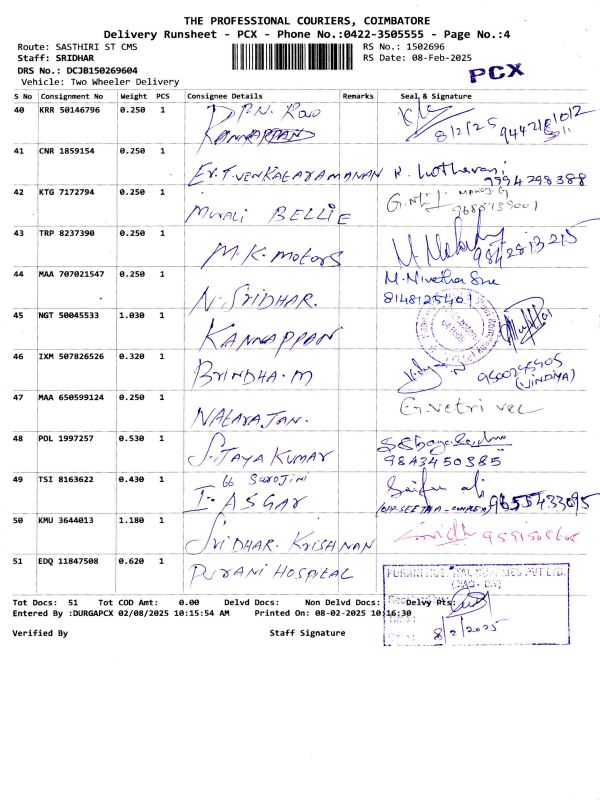 THE PROFESSIONAL COURIERS, COIMBATORE
Delivery Runsheet - PCX - Phone No.:0422-3505555 - Page No.:4
Route: SASTHIRI ST CMS RS No.: 1502696
Staff: SRIDHAR RS Date: 08-Feb-2025
DRS No.: DCJB150269604
PCX
Vehicle: Two Wheeler Delivery
S No Consignment No Weight PCS Consignee Details Remarks Seal & Signature
40 KRR 50146796 0.250 1 P.N. Rao
8/2/25
41 CNR 1859154 0.250 1 Er.T.VENKATARAMANAN
9994298388
42 KTG 7172794 0.250 1 MURALI BELLIE
43 TRP 8237390 0.250 1 M.K. MOTORS
9842813215
44 MAA 707021547 0.250 1 N. SRIDHAR. M. Nivetha Sre
8148125401
45 NGT 50045533 1.030 1 KANNAPPAN
46 IXM 507826526 0.320 1 BRINDHA.M
(VINDIYA)
47 MAA 650599124 0.250 1 NATARAJAN. G. Vetri vel
48 POL 1997257 0.530 1 S. JAYA KUMAR
9843450385
49 TSI 8163622 0.430 1 66 Sarojini
I. ASGAR 9655433095
50 KMU 3644013 1.180 1 SRIDHAR. KRISHNAN
51 EDQ 11847508 0.620 1 PURANI HOSPITAL
8/2/2025
Tot Docs: 51 Tot COD Amt: 0.00 Delvd Docs: Non Delvd Docs: Delvy Pts:
Entered By :DURGAPCX 02/08/2025 10:15:54 AM Printed On: 08-02-2025 10:16:30
Verified By Staff Signature